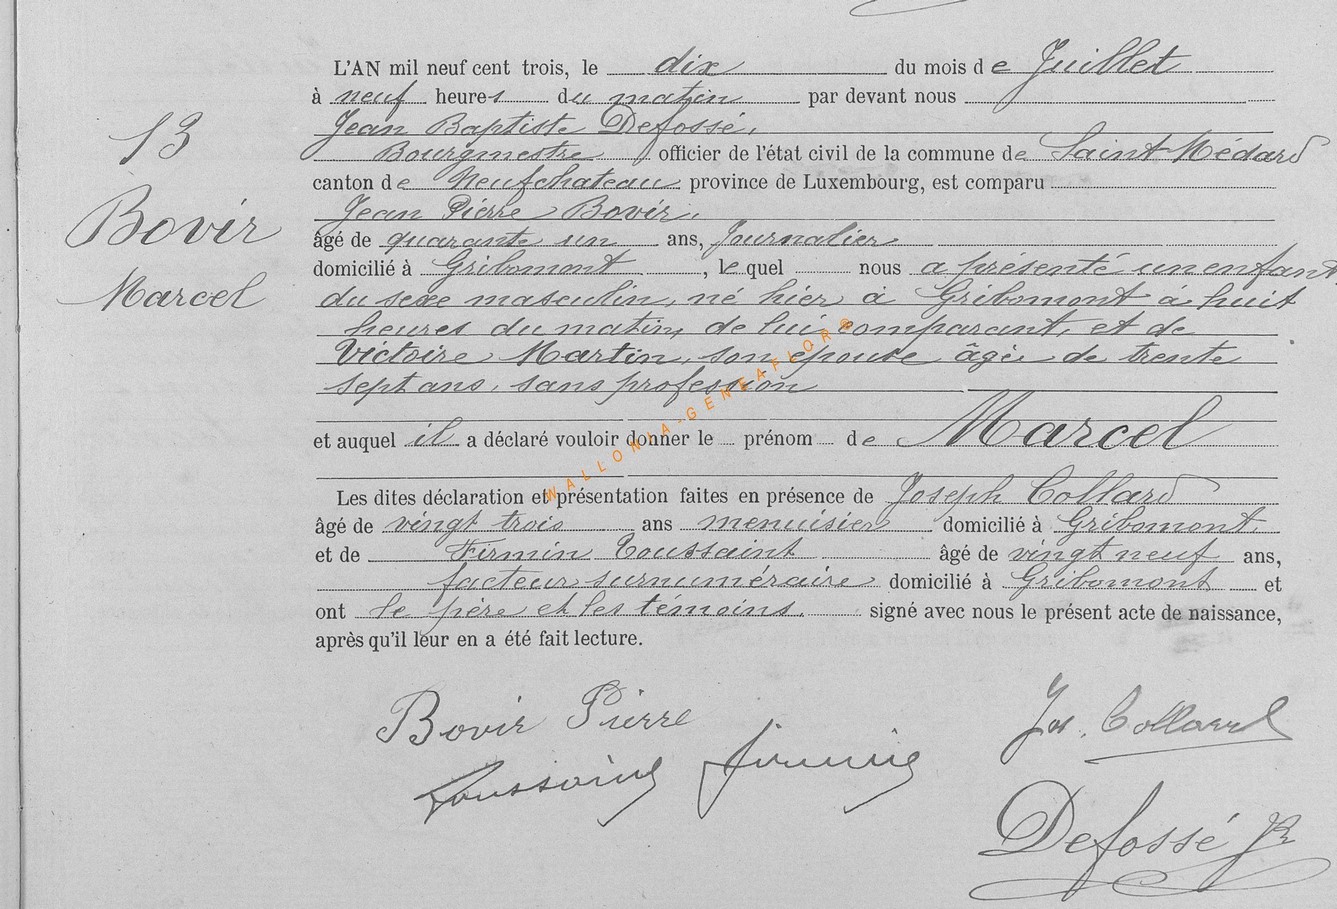 L'AN mil neuf cent trois, le dix du mois de Juillet
à neuf heures du matin par devant nous
Jean Baptiste Defossé,
13
Bourgmestre, officier de l'état civil de la commune de Saint-Médard
canton de Neufchateau province de Luxembourg, est comparu
Jean Pierre Bovir,
Bovir
âgé de quarante un ans, Journalier
domicilié à Gribomont, lequel nous a présenté un enfant
Marcel
du sexe masculin, né hier à Gribomont à huit
heures du matin, de lui comparant, et de
Victoire Martin, son épouse âgée de trente
sept ans, sans profession
et auquel il a déclaré vouloir donner le prénom de Marcel
Les dites déclaration et présentation faites en présence de Joseph Collard
âgé de vingt trois ans menuisier domicilié à Gribomont
et de Firmin Toussaint âgé de vingt neuf ans,
facteur surnuméraire domicilié à Gribomont et
ont le père et les témoins, signé avec nous le présent acte de naissance,
après qu'il leur en a été fait lecture.
Bovir Pierre
Jos. Collard
Toussaint Firmin
Defossé JB
WALLONIA-GENEAFLOR®